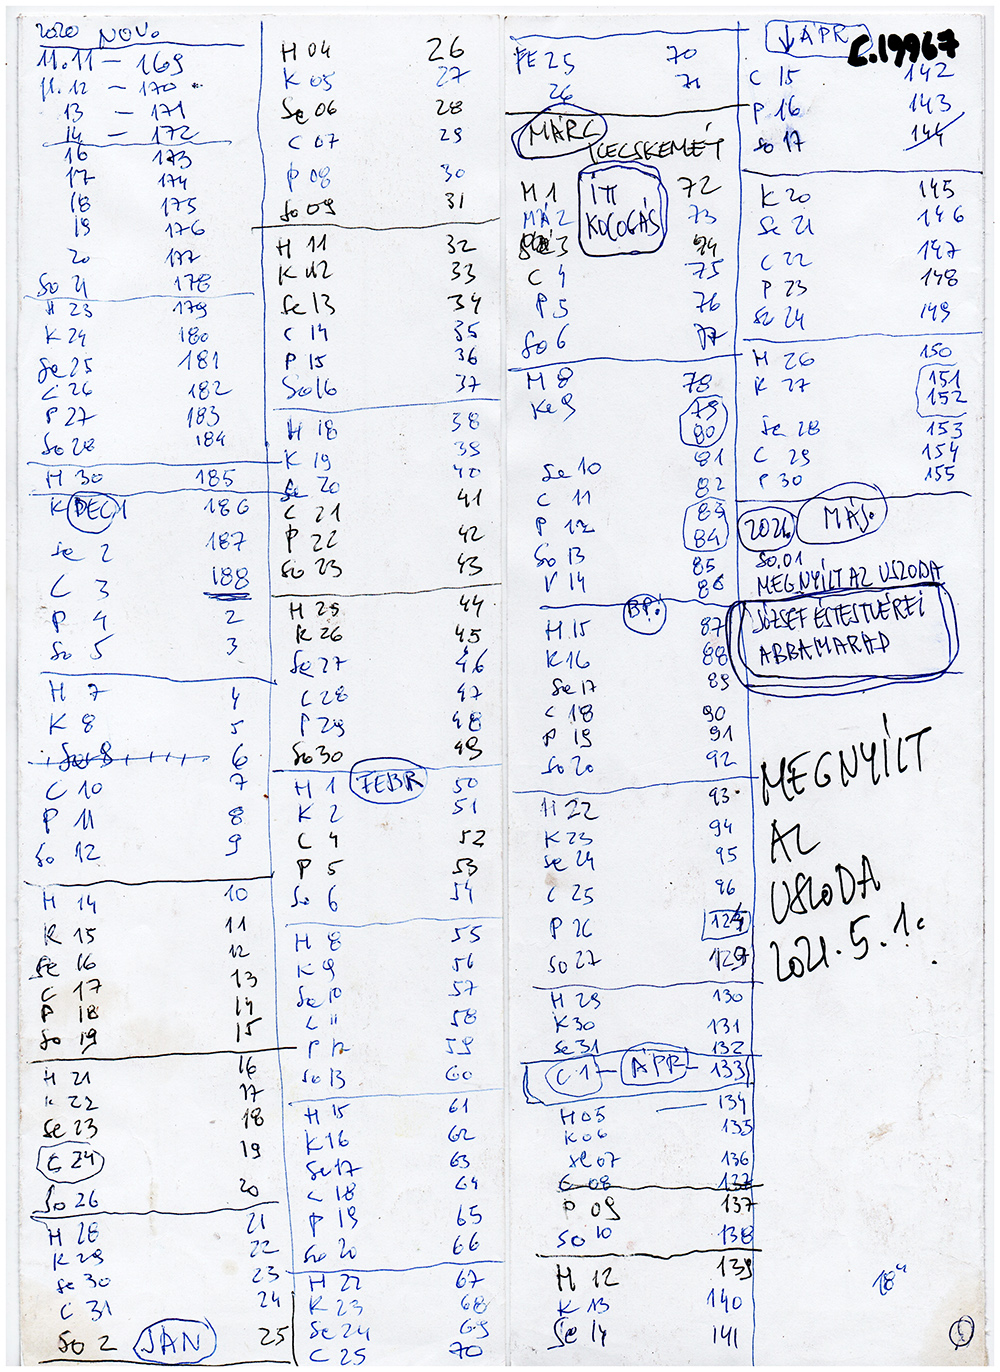 2020 NOV.
11.11 – 169
11.12 – 170
13 – 171
14 – 172
16 173
17 174
18 175
19 176
20 177
So 21 178
H 23 179
K 24 180
Se 25 181
C 26 182
P 27 183
So 28 184
H 30 185
K DEC 1 186
Se 2 187
C 3 188
P 4 2
So 5 3
H 7 4
K 8 5
Se 9 6
C 10 7
P 11 8
So 12 9
H 14 10
K 15 11
Se 16 12
C 17 13
P 18 14
So 19 15
H 21 16
K 22 17
Se 23 18
C 24 19
So 26 20
H 28 21
K 29 22
Se 30 23
C 31 24
So 2 JAN 25
H 04 26
K 05 27
Se 06 28
C 07 29
P 08 30
So 09 31
H 11 32
K 12 33
Se 13 34
C 14 35
P 15 36
So 16 37
H 18 38
K 19 39
Se 20 40
C 21 41
P 22 42
So 23 43
H 25 44
K 26 45
Se 27 46
C 28 47
P 29 48
So 30 49
H 1 FEBR 50
K 2 51
C 4 52
P 5 53
So 6 54
H 8 55
K 9 56
Se 10 57
C 11 58
P 12 59
So 13 60
H 15 61
K 16 62
Se 17 63
C 18 64
P 19 65
So 20 66
H 22 67
K 23 68
Se 24 69
C 25 70
FE 25 70
26 71
MÁRC
KECSKEMÉT
H 1 ITT 72
MÁ 2 KOCOGÁS 73
3 74
C 4 75
P 5 76
So 6 77
H 8 78
Ke 9 79
80
81
Se 10 82
C 11 83
P 12 84
So 13 85
V 14 86
BP!
H 15 87
K 16 88
Se 17 89
C 18 90
P 19 91
So 20 92
H 22 93
K 23 94
Se 24 95
C 25 96
P 26 124
So 27 129
H 29 130
K 30 131
Se 31 132
C 1 – ÁPR – 133
H 05 — 134
K 06 135
Se 07 136
C 08 137
P 09 137
So 10 138
H 12 139
K 13 140
Se 14 141
↓ ÁPR
C.19967
C 15 142
P 16 143
So 17 144
K 20 145
Se 21 146
C 22 147
P 23 148
So 24 149
H 26 150
K 27 151
152
Se 28 153
C 29 154
P 30 155
2021. MÁJ.
So.01
MEGNYÍLT AZ USZODA
JÓZSEF ÉS TESTVÉREI
ABBAMARAD
MEGNYÍLT
AZ
USZODA
2021.5.1.
18"